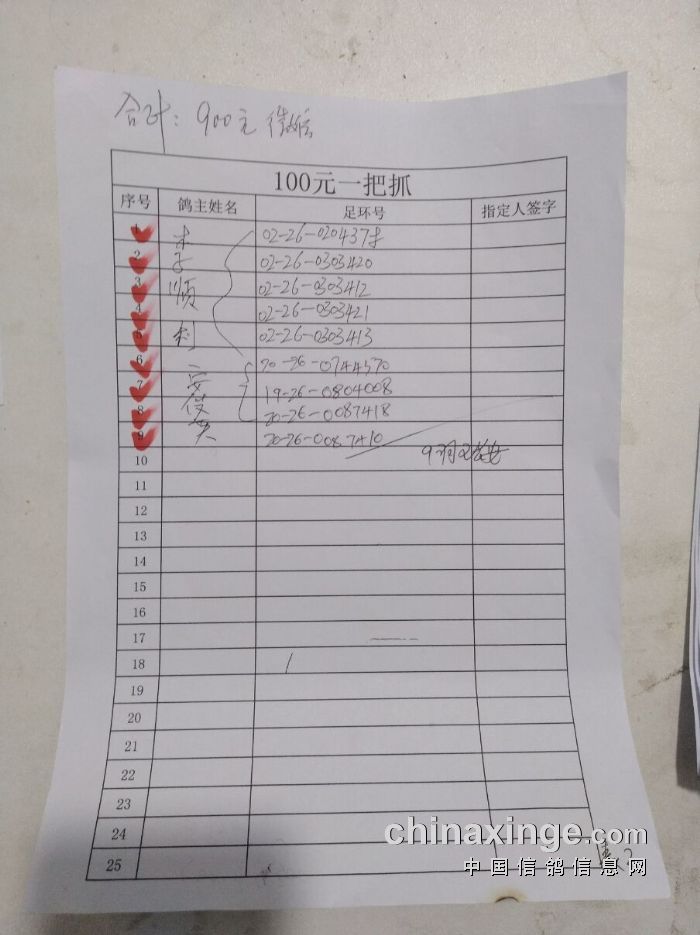 合计: 900元 微信
100元一把抓
序号 鸽主姓名 足环号 指定人签字
1 02-26-020437
2 02-26-0303420
3 顺 02-26-0303412
4 02-26-0303421
5 利 02-26-0303413
6 20-26-0744370
7 19-26-0804008
8 20-26-0087418
9 20-26-0087410
10 9羽
11
12
13
14
15
16
17
18
19
20
21
22
23
24
25
chinaxinge.com
中国信鸽信息网